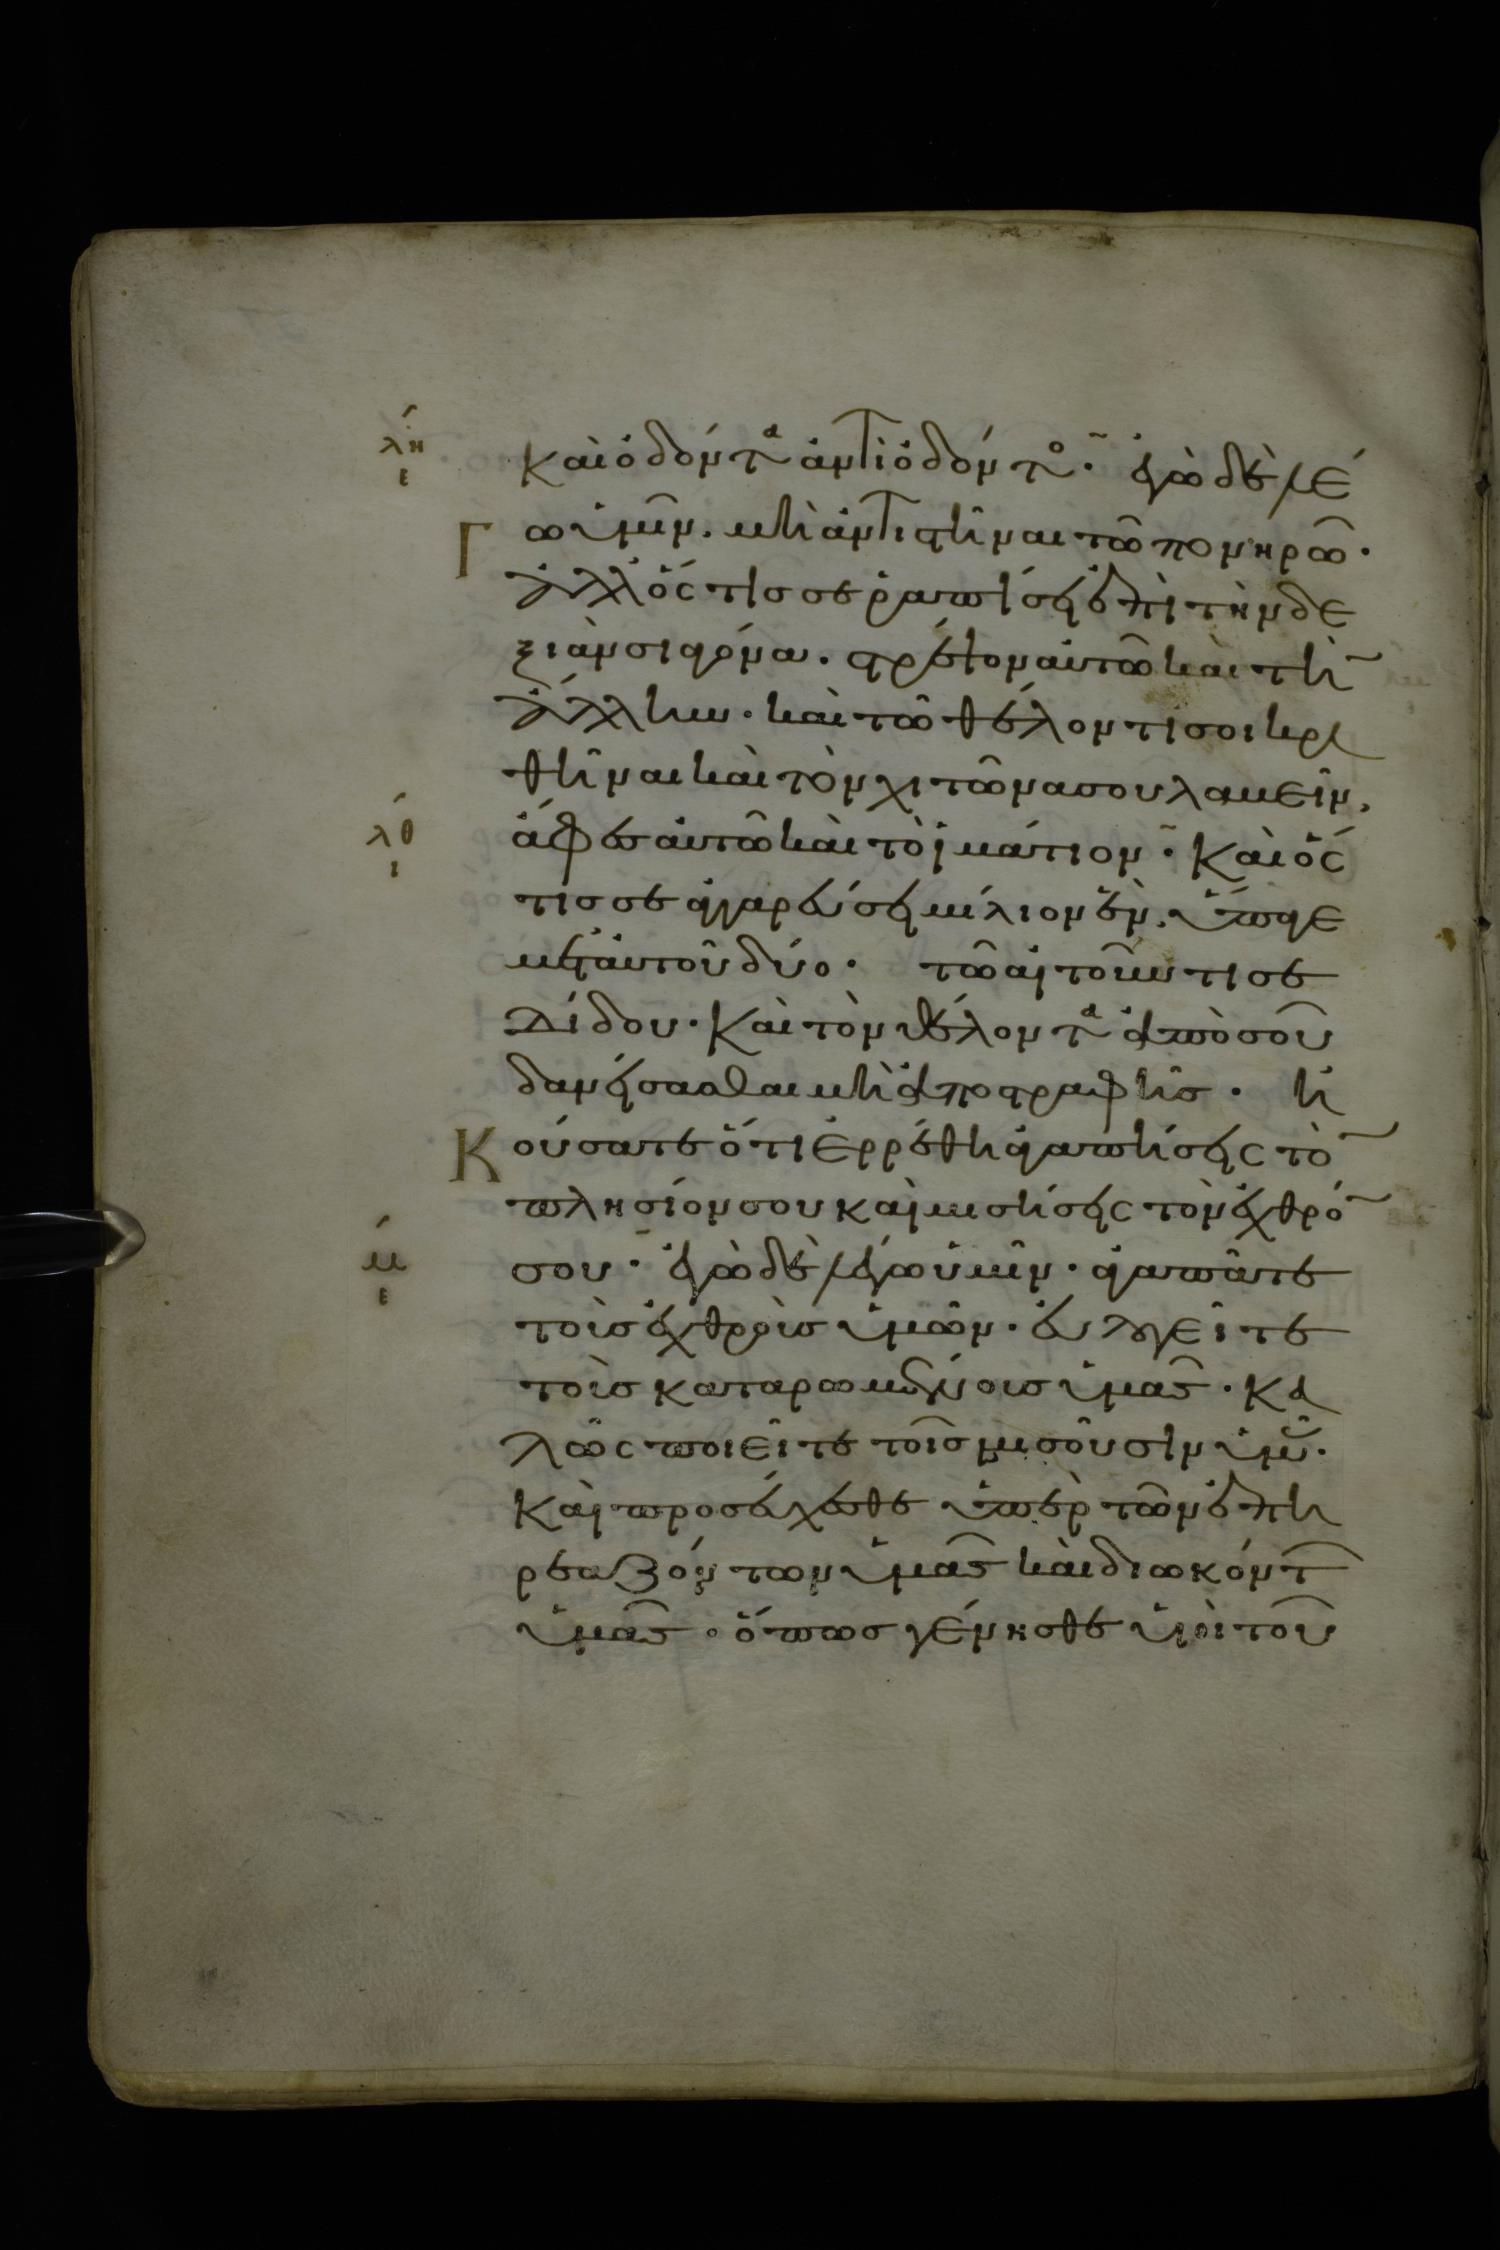 λη
ε
καὶ ὀδόντα ἀντὶ ὀδόντος· ἐγὼ δὲ λέ
Γ ω ὑμῖν. μὴ ἀντιστῆναι τῶ πονηρῶ·
ἀλλ' ὅστις σε ῥαπίσει ἐπὶ τὴν δε
ξιὰν σιαγόνα. στρέψον αὐτῶ καὶ τὴν
ἄλλην. καὶ τῶ θέλοντί σοι κρι
θῆναι καὶ τὸν χιτῶνα σου λαβεῖν.
λθ
ι
ἄφες αὐτῶ καὶ τὸ ἱμάτιον· Καὶ ὅσ
τις σε ἀγγαρεύσει μίλιον ἕν. ὕπαγε
μετ' αὐτοῦ δύο. τῶ αἰτοῦντι σε
Δίδου. Καὶ τὸν θέλοντα ἀπὸ σοῦ
δανείσασθαι μὴ ἀποστραφῆς. ἠ
Κ ούσατε ὅτι ἐρρέθη ἀγαπήσεις τὸν
πλησίον σου καὶ μισήσεις τὸν ἐχθρόν
μ
ε
σου· ἐγὼ δὲ λέγω ὑμῖν. ἀγαπᾶτε
τοὺς ἐχθροὺς ὑμῶν. εὐλογεῖτε
τοὺς καταρωμένους ὑμᾶς. Κα
λῶς ποιεῖτε τοῖς μισοῦσιν ὑμᾶς.
Καὶ προσεύχεσθε ὑπὲρ τῶν ἐπη
ρεαζόντων ὑμᾶς καὶ διωκόντων
ὑμᾶς. ὅπως γένησθε υἱοὶ τοῦ